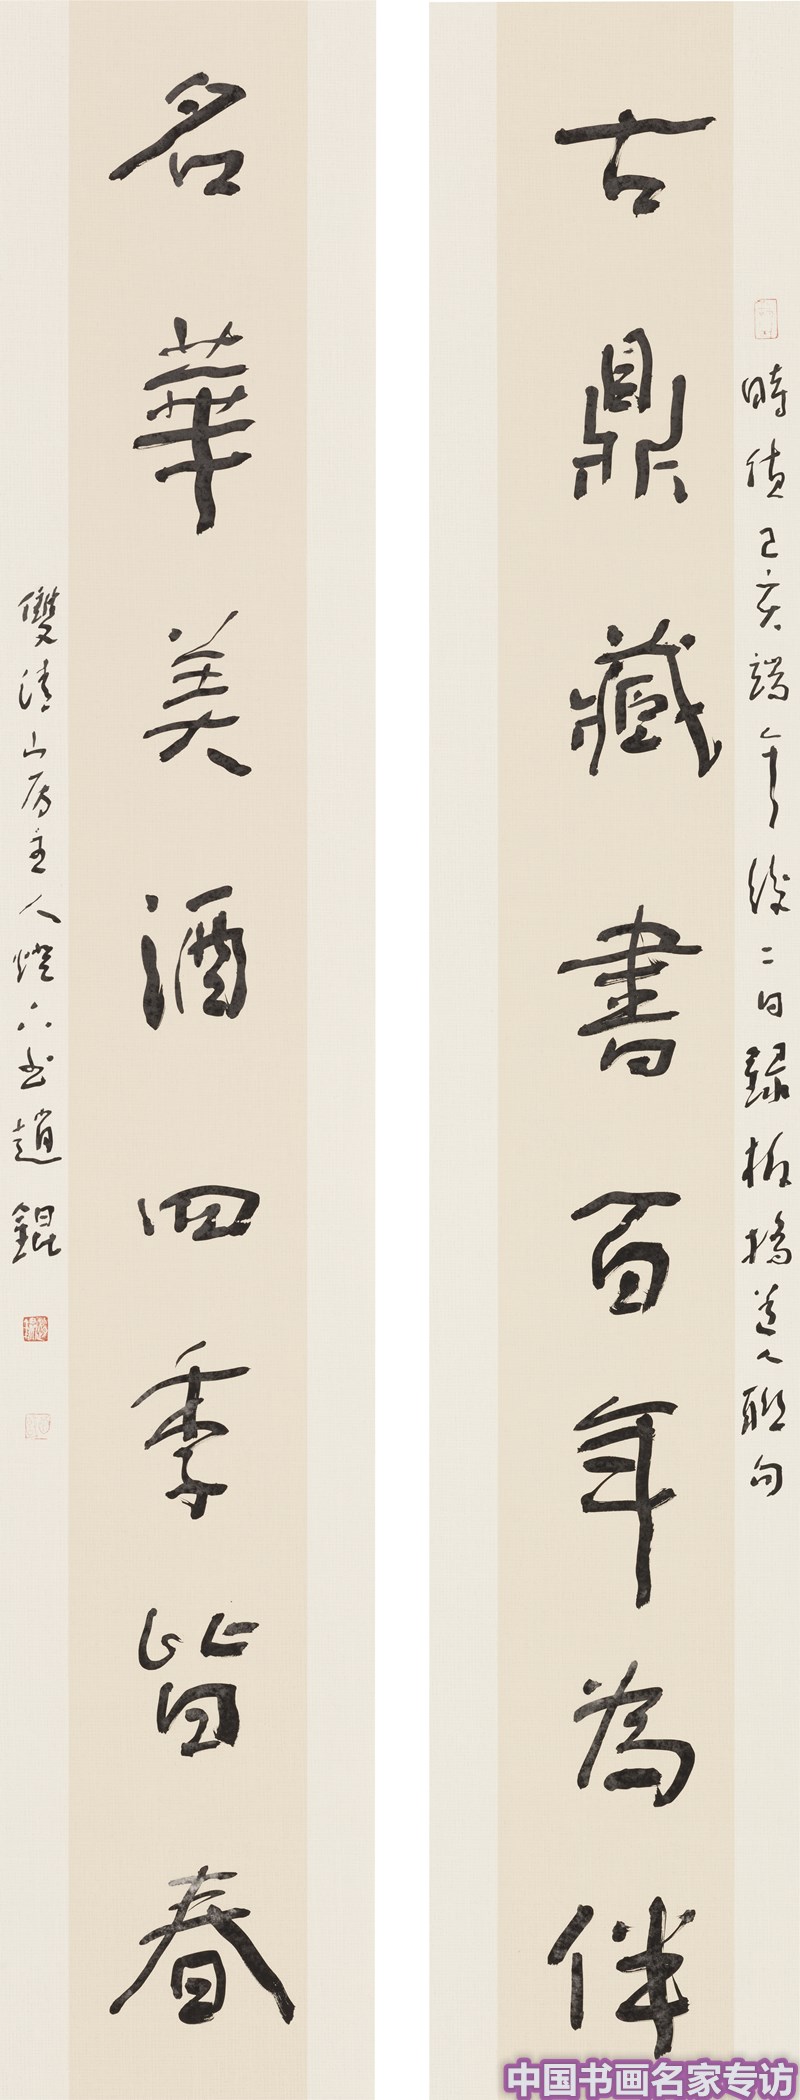 時值己亥端午後二日錄板橋道人聯句
古鼎藏書百年為伴
名華美酒四季皆春
雙清山房主人燈下書趙錕
中国书画名家专访